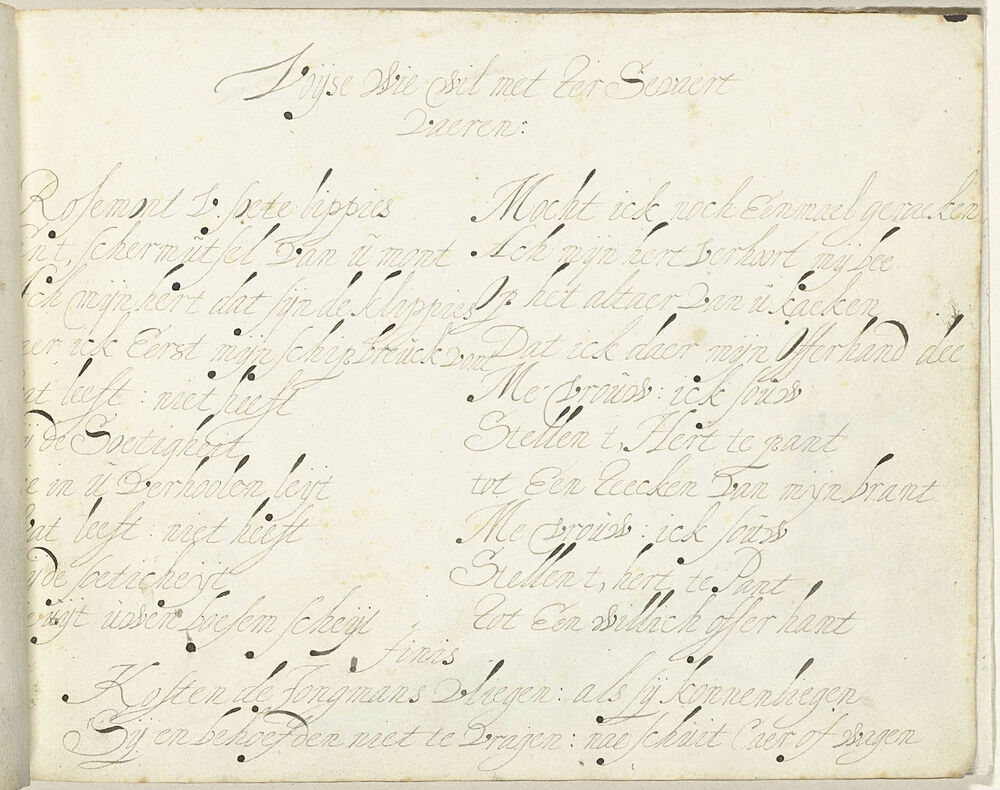 Voijse Wie wil met ter Sewaert
Vaeren:
Rosemont V. soete lippies
Ent, schermutsel Van ũ mont
Ach mijn hert dat sijn de klippies
ick Eerst mijn schipbreuck Vont
at leeft : niet heeft
de Soetigheit
in ũ Verhoolen leijt
at leeft : niet heeft
de soeticheijt
uijt uwen boesem scheijt
Mocht ick noch Eenmael geraeken
Ach mijn hert verhoort mij bee
Op het altaer Van ũ kaeken
Dat ick daer mijn Offerhand dee
Me vroũw : ick soũw
Stellen t, Hert te pant
tot Een teecken Van mijn brant
Me vroũw : ick soũw
Stellen t, hert te Pant
tot Een willich offer hant
finis
Kosten de Jongmans Vliegen : als sij konnen liegen
Sij en behoefden niet te Vragen : nae schuit Caer of wagen